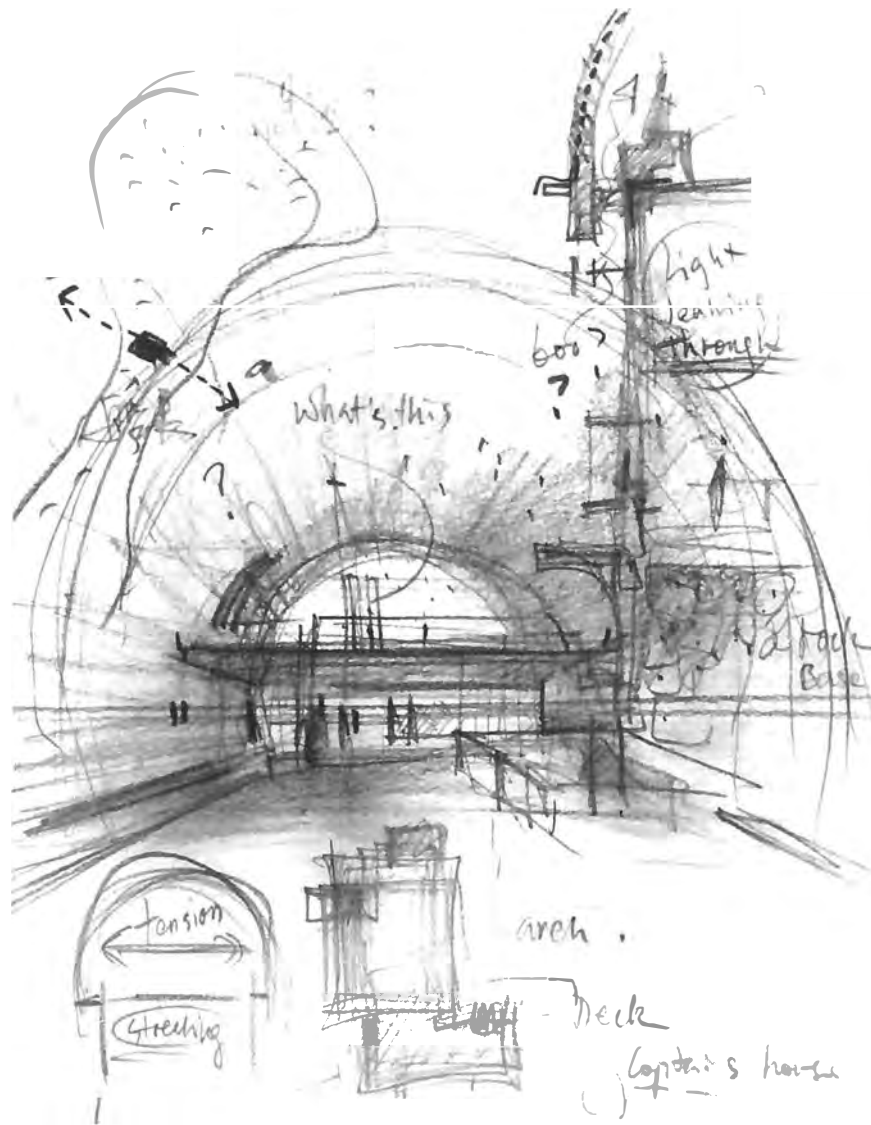 light
leaking
through
600?
?
what's this
?
rock
Base
tension
arch.
Deck
Captain's house